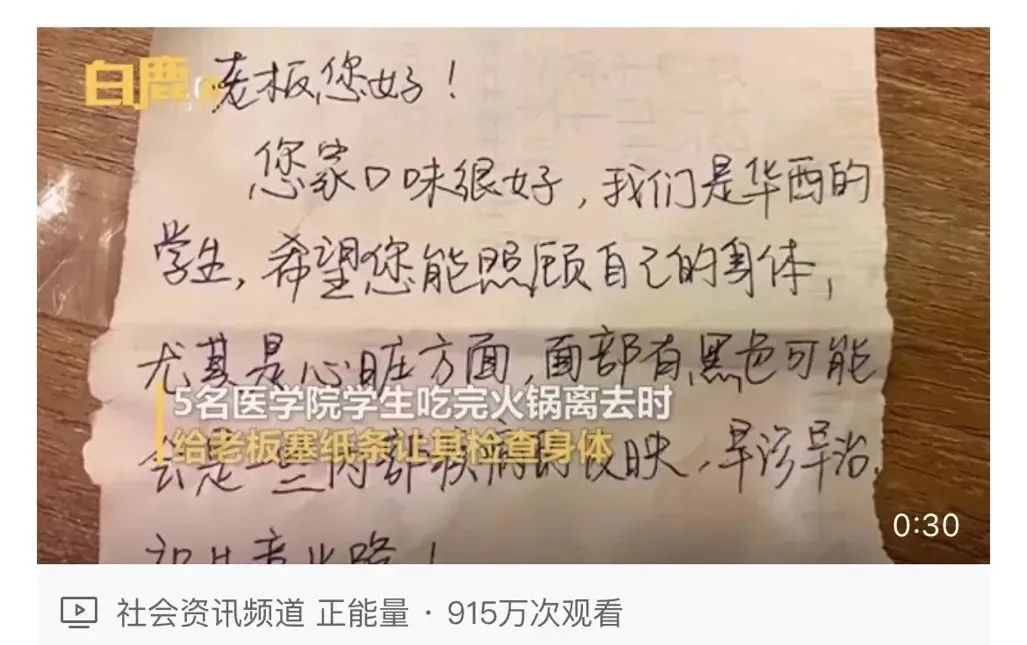 白鹿
老板,您好!
您家口味很好,我们是华西的
学生,希望您能照顾自己的身体,
尤其是心脏方面,面部有黑色可能
5名医学院学生吃完火锅离去时
给老板塞纸条让其检查身体
会是一些内部疾病的反映,早诊早治.
0:30
社会资讯频道 正能量 · 915万次观看